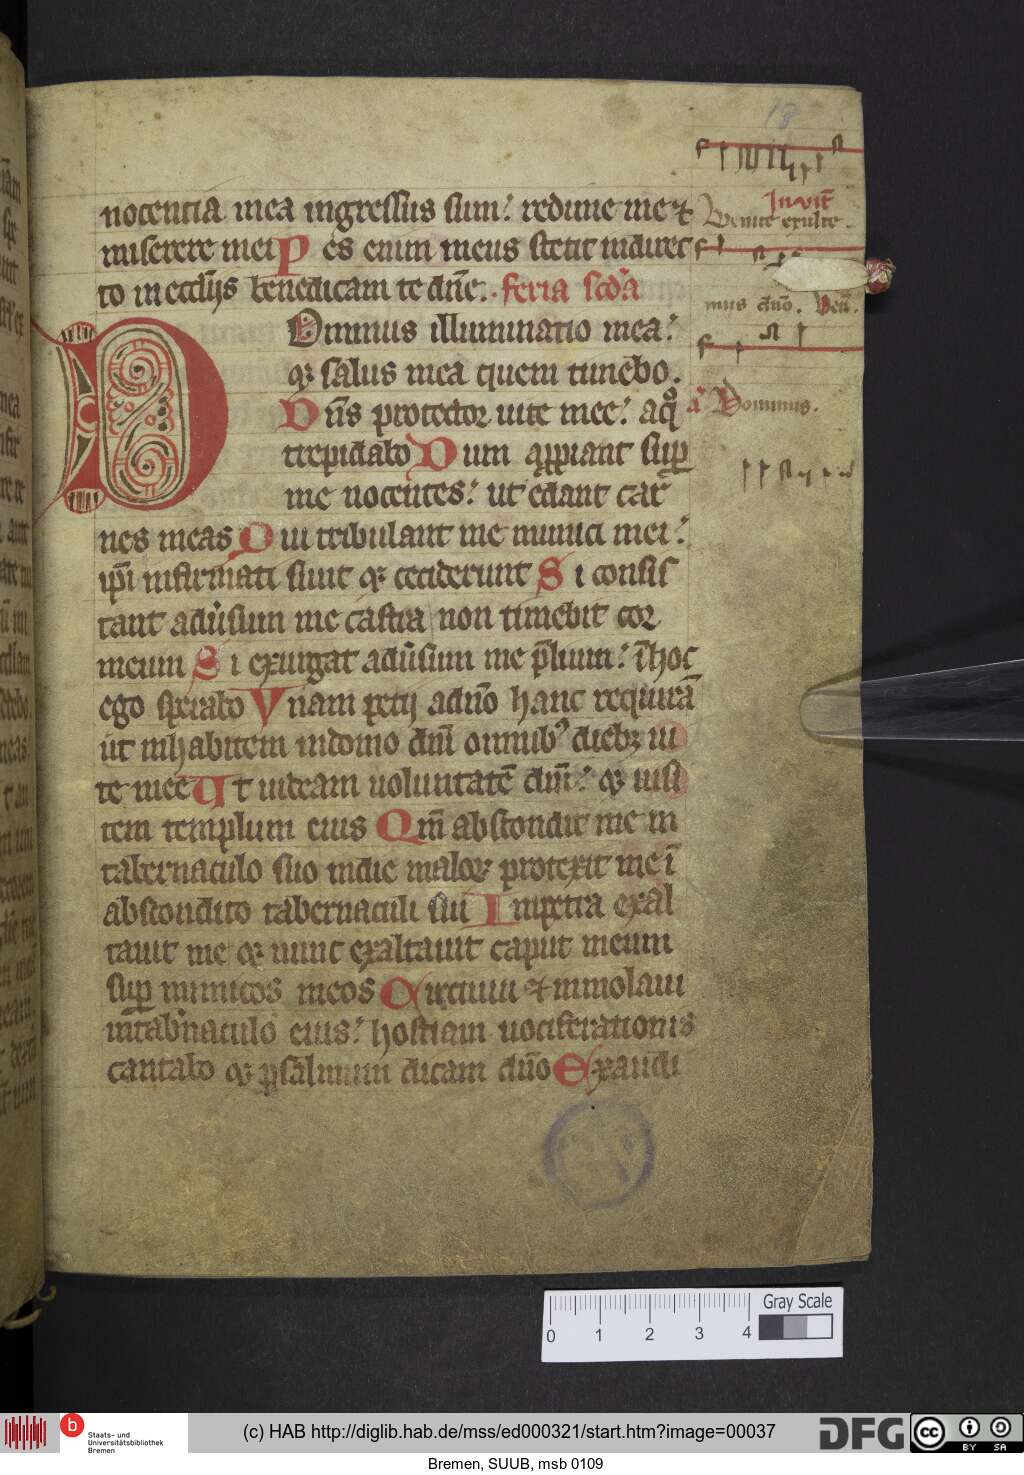 18
nocentia mea ingressus sum: redime me ⁊
miserere mei Pes enim meus stetit in direc
to in eccl̄ijs benedicam te dn̄e. feria scd̄a
Dominus illuminatio mea:
⁊ salus mea quem timebo.
Dn̄s protector uite mee: a q̊
trepidabo Dum appropiant sup̱
me nocentes: ut edant car
nes meas Qui tribulant me inimici mei:
ip̄i infirmati sunt ⁊ ceciderunt Si consis
tant adūsum me castra non timebit cor
meum Si exurgat adūsum me p̄lium: ī hoc
ego sperabo Vnam petij a dn̄o hanc requirā
ut inhabitem in domo dn̄i omnibꝰ diebꝫ ui
te mee Ut uideam uoluntatē dn̄i: ⁊ uisi
tem templum eius Qm̄ abscondit me in
tabernaculo suo in die maloꝝ protexit me ī
abscondito tabernaculi sui In petra exal
tauit me ⁊ nunc exaltauit caput meum
sup̱ inimicos meos Circuiui ⁊ immolaui
in tab̄naculo eius: hostiam uociferationis
cantabo ⁊ psalmum dicam dn̄o Exaudi
Inuit̄
Venite exulte
mus dn̄o. Ven̄.
a̅ Dominus.
0 1 2 3 4
Gray Scale
b
Staats- und
Universitätsbibliothek
Bremen
(c) HAB http://diglib.hab.de/mss/ed000321/start.htm?image=00037
DFG
cc BY SA
Bremen, SUUB, msb 0109